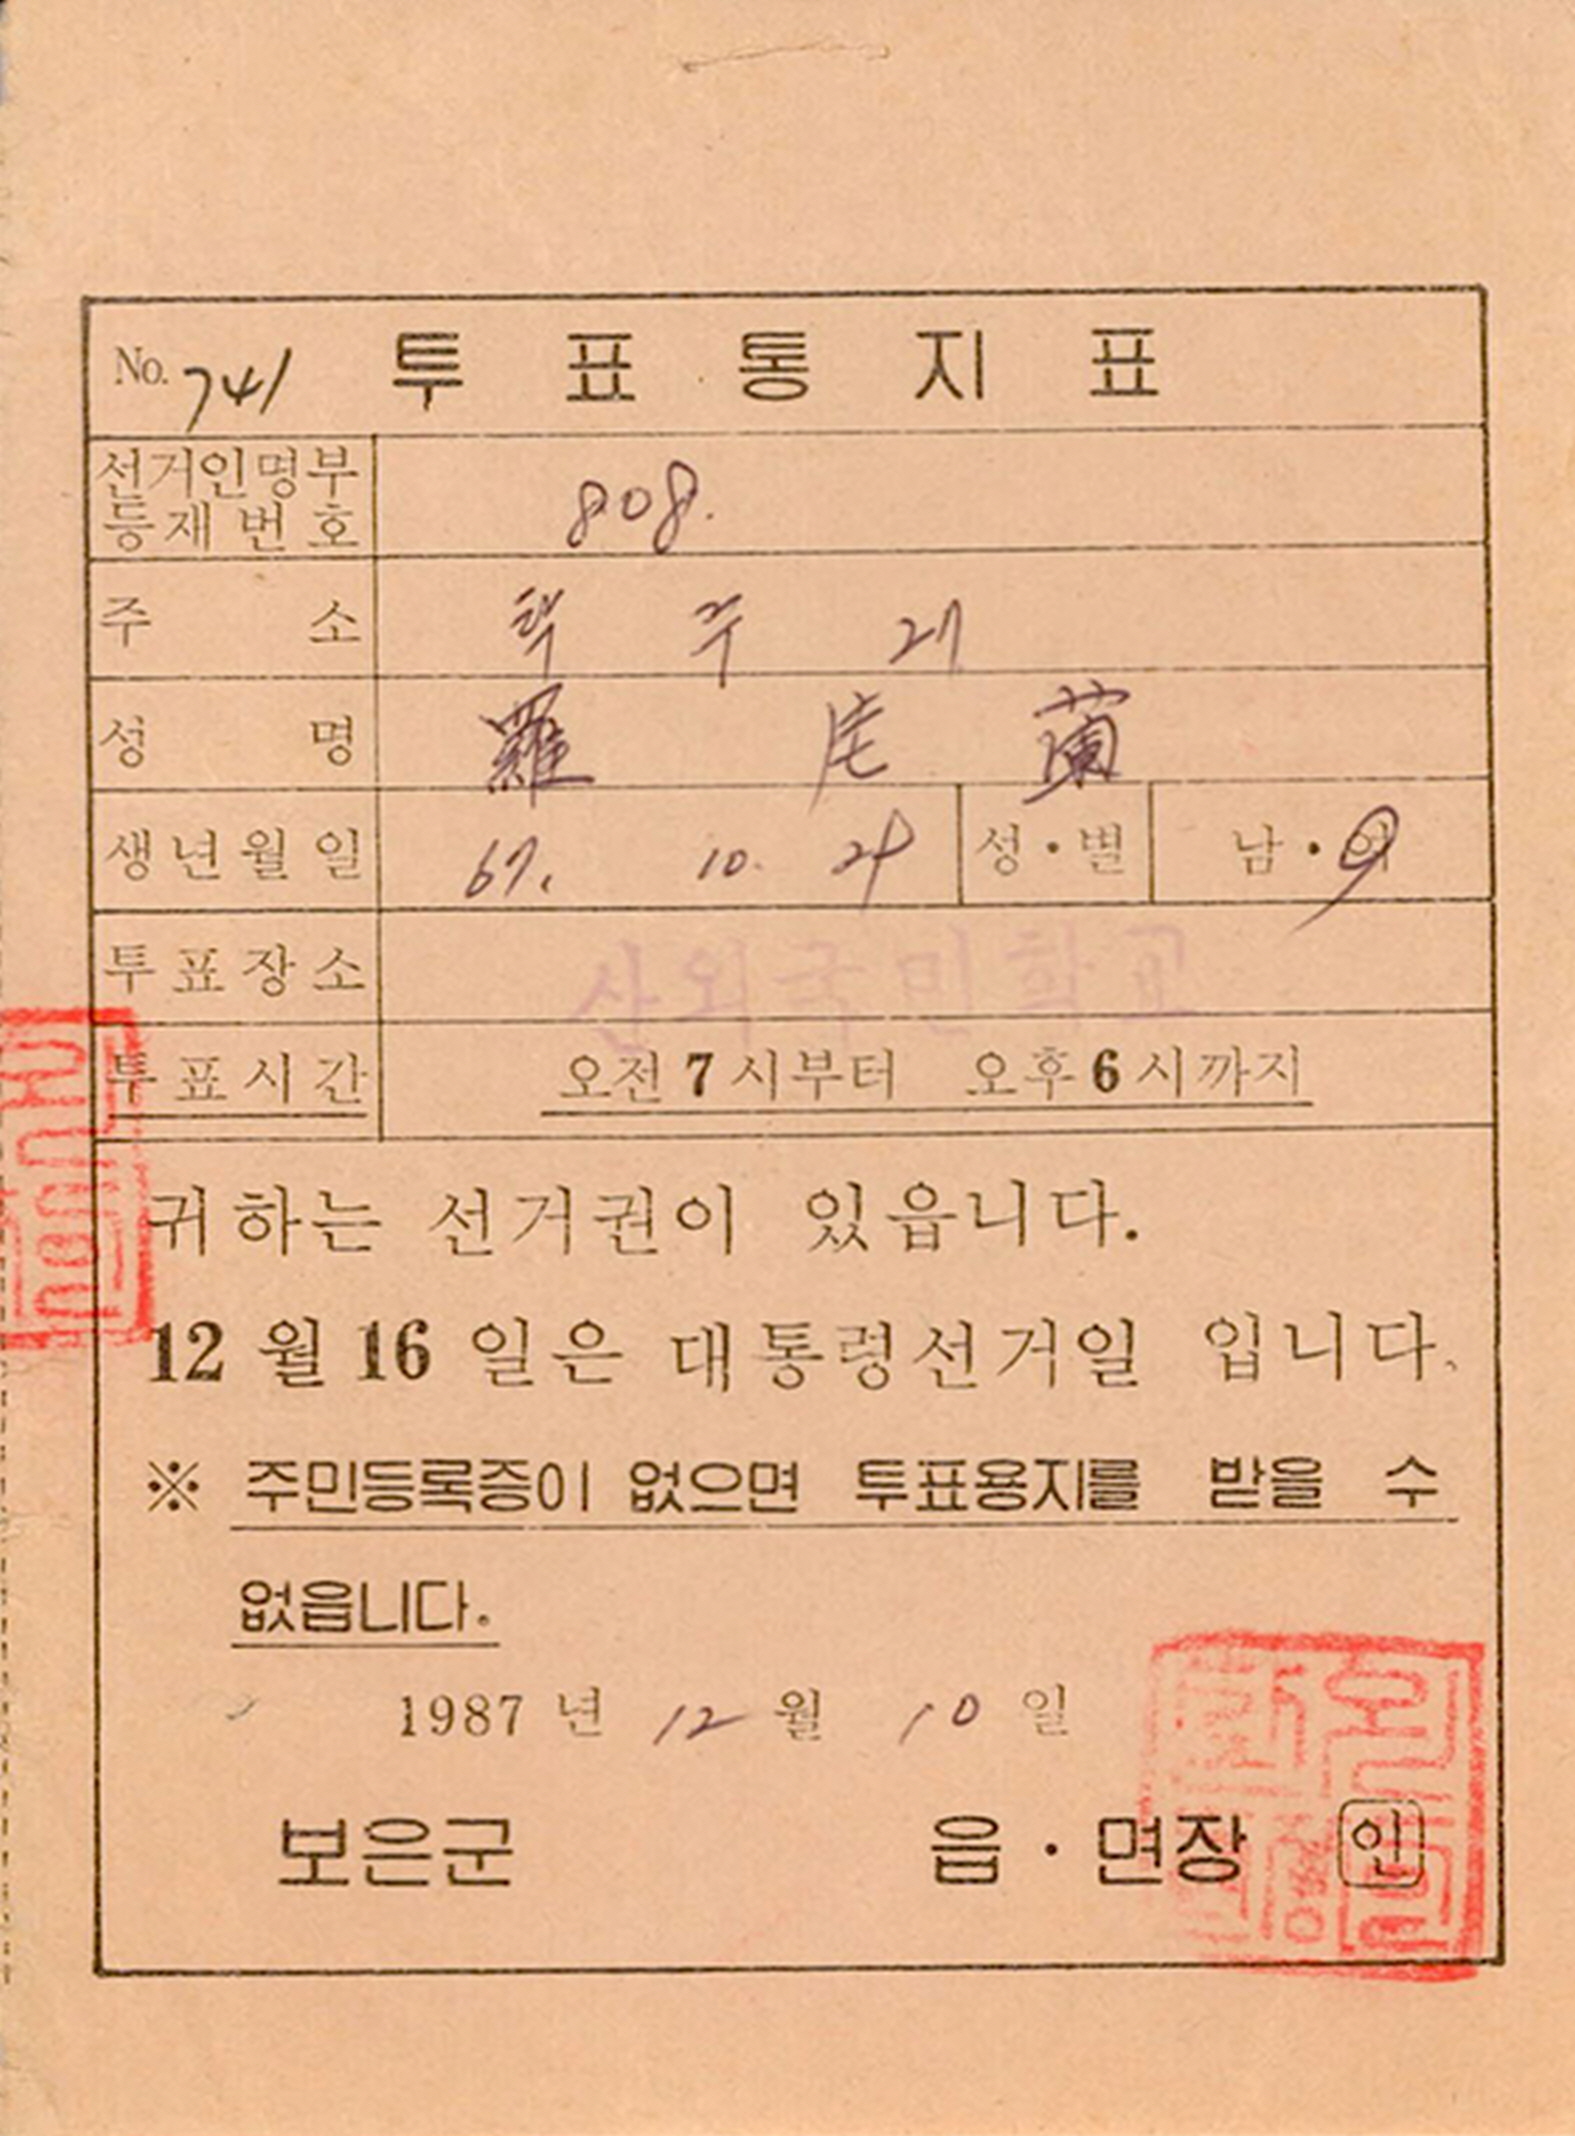 No. 741 투표통지표
선거인명부
등재번호
808.
주소
성명 羅 蘭
생년월일 67. 10. 성·별 남·여
투표장소 산외국민학교
투표시간 오전 7시부터 오후 6시까지
귀하는 선거권이 있읍니다.
12월 16일은 대통령선거일 입니다.
※ 주민등록증이 없으면 투표용지를 받을 수
없읍니다.
1987년 12월 10일
보은군 읍·면장 인